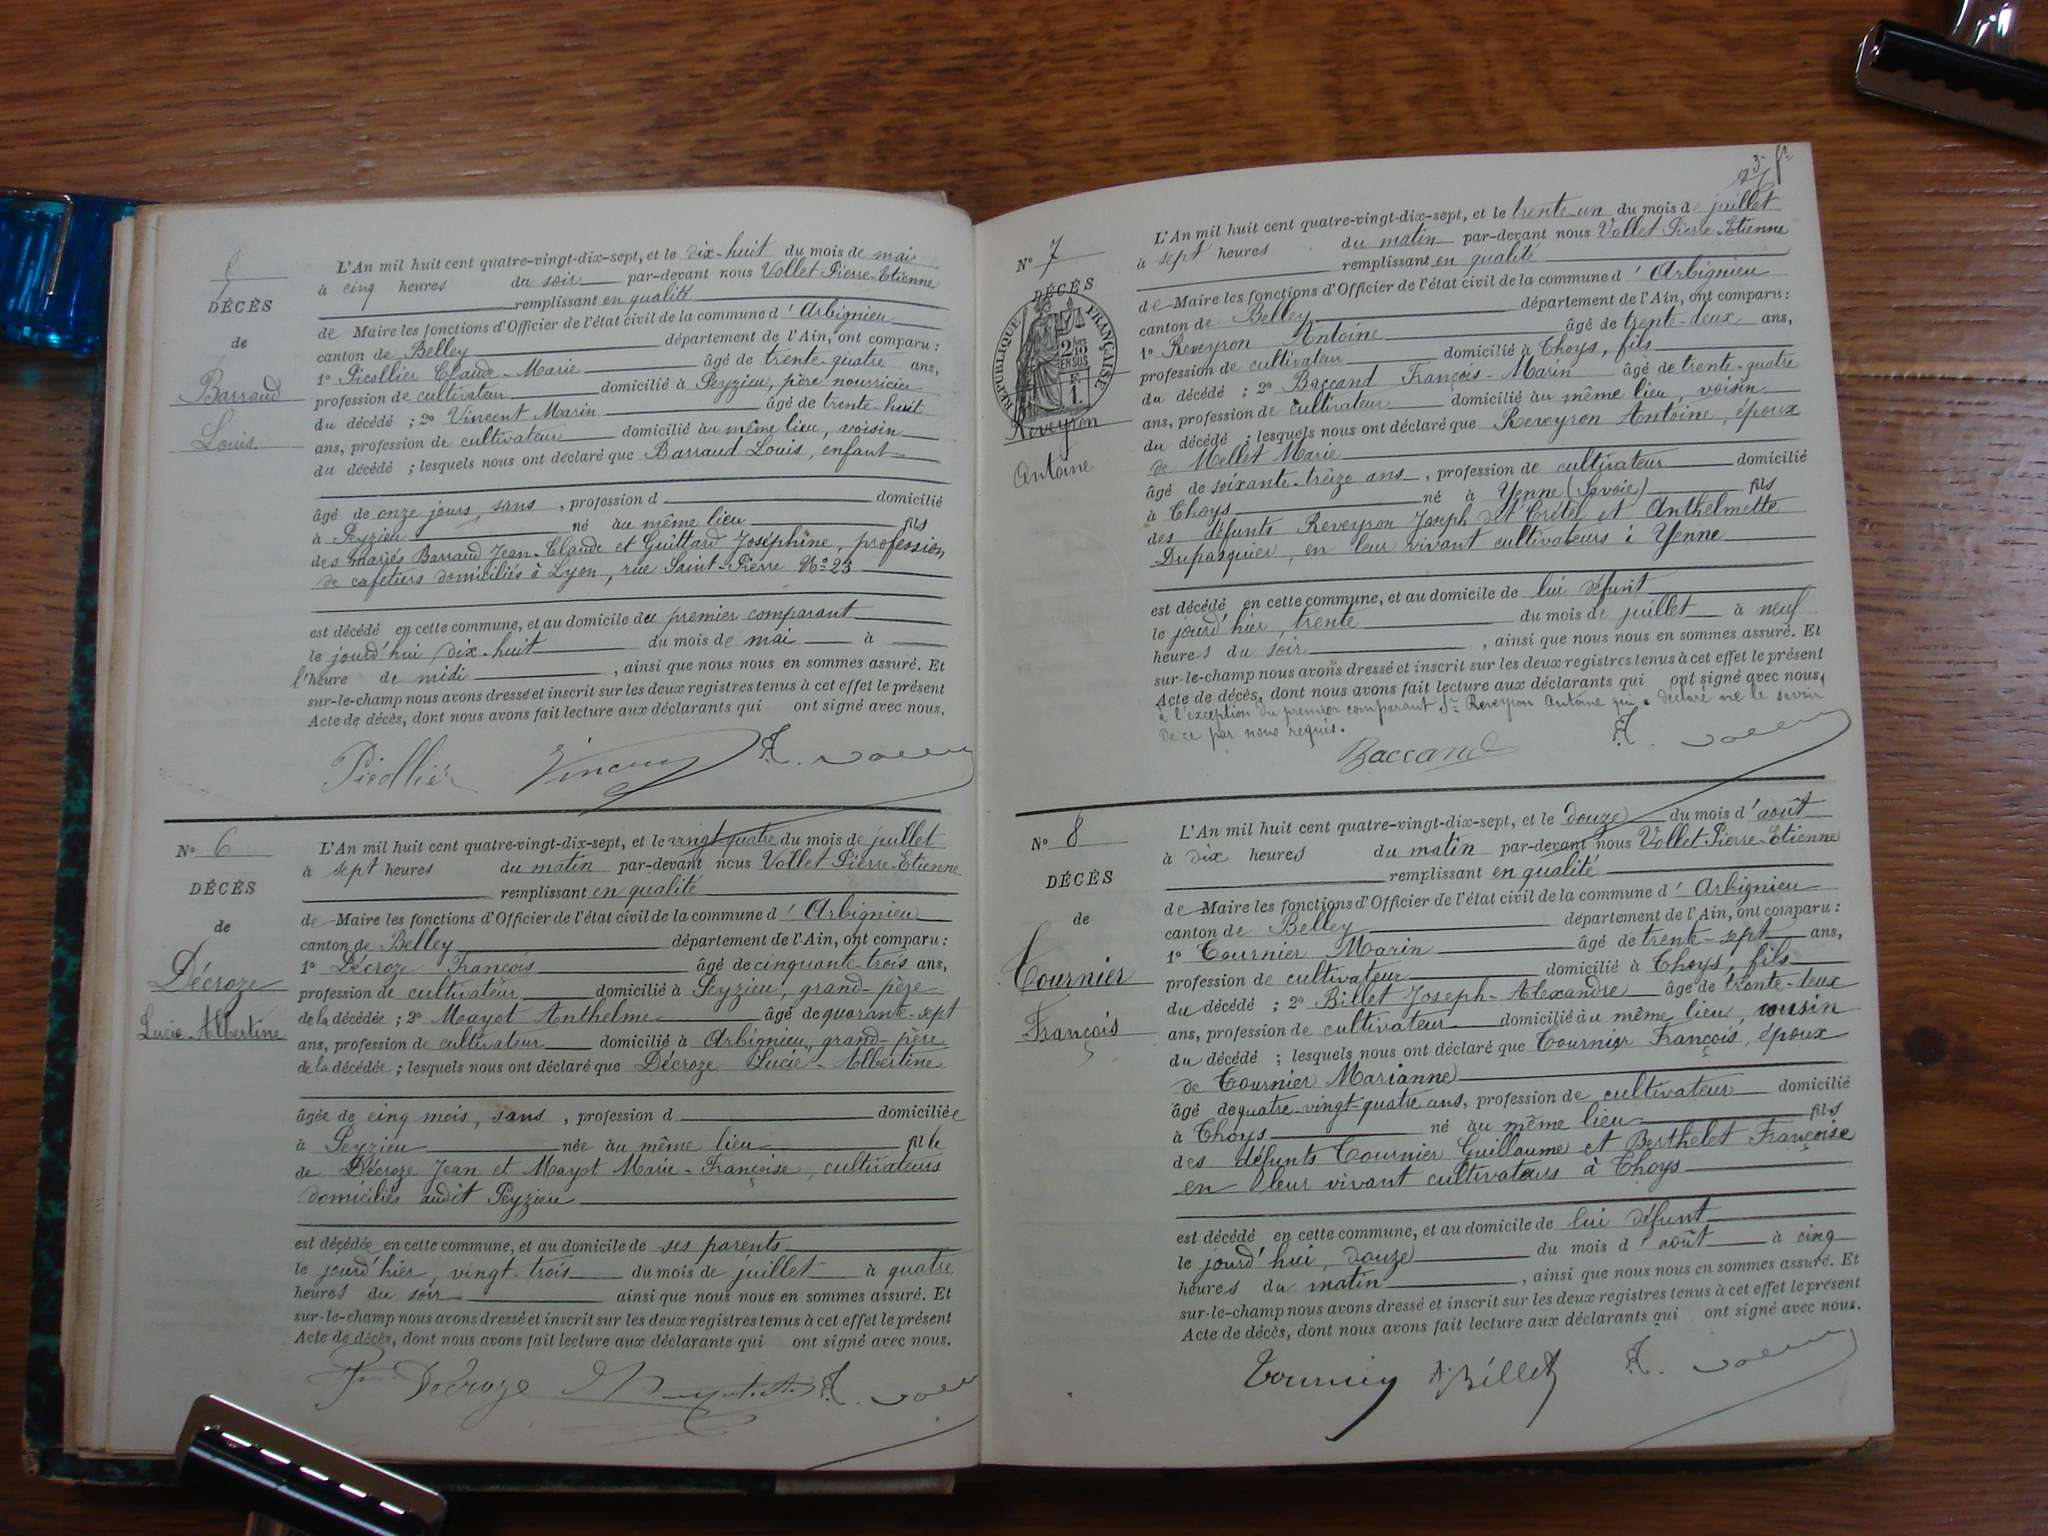 DÉCÈS
de
Barraud
Louis.
L'An mil huit cent quatre-vingt-dix-sept, et le dix-huit du mois de mai
à cinq heures du soir par-devant nous Vollet Pierre-Etienne
remplissant en qualité
de Maire les fonctions d'Officier de l'état civil de la commune d'Arbignieu
canton de Belley département de l'Ain, ont comparu :
1º Picollier Claude-Marie âgé de trente-quatre ans,
profession de cultivateur domicilié à Peyzieu, père nourricier
du décédé ; 2º Vincent Marin âgé de trente-huit
ans, profession de cultivateur domicilié au même lieu, voisin
du décédé ; lesquels nous ont déclaré que Barraud Louis, enfant
âgé de onze jours, sans , profession d domicilié
à Peyzieu né au même lieu fils
des mariés Barraud Jean-Claude et Guittard Joséphine, profession
de cafetiers domiciliés à Lyon, rue Saint-Pierre Nº 23
est décédé en cette commune, et au domicile du premier comparant
le jourd'hui dix-huit du mois de mai à
l'heure de midi , ainsi que nous nous en sommes assuré. Et
sur-le-champ nous avons dressé et inscrit sur les deux registres tenus à cet effet le présent
Acte de décès, dont nous avons fait lecture aux déclarants qui ont signé avec nous.
Picollier Vincent
Nº 6
DÉCÈS
de
Décroze
Lucie-Albertine
L'An mil huit cent quatre-vingt-dix-sept, et le vingt-quatre du mois de juillet
à sept heures du matin par-devant nous Vollet Pierre-Etienne
remplissant en qualité
de Maire les fonctions d'Officier de l'état civil de la commune d'Arbignieu
canton de Belley département de l'Ain, ont comparu :
1º Décroze François âgé de cinquante-trois ans,
profession de cultivateur domicilié à Peyzieu, grand-père
de la décédée ; 2º Mayot Anthelme âgé de quarante-sept
ans, profession de cultivateur domicilié à Arbignieu, grand-père
de la décédée ; lesquels nous ont déclaré que Décroze Lucie-Albertine
âgée de cinq mois, sans , profession d domiciliée
à Peyzieu née au même lieu fille
de Décroze Jean et Mayot Marie-Françoise, cultivateurs
domiciliés audit Peyzieu
est décédée en cette commune, et au domicile de ses parents
le jourd'hier, vingt-trois du mois de juillet à quatre
heures du soir ainsi que nous nous en sommes assuré. Et
sur-le-champ nous avons dressé et inscrit sur les deux registres tenus à cet effet le présent
Acte de décès, dont nous avons fait lecture aux déclarants qui ont signé avec nous.
Décroze
Nº 7
DÉCÈS
RÉPUBLIQUE FRANÇAISE
Reveyron
Antoine
L'An mil huit cent quatre-vingt-dix-sept, et le trente-un du mois de juillet
à sept heures du matin par-devant nous Vollet Pierre-Etienne
remplissant en qualité
de Maire les fonctions d'Officier de l'état civil de la commune d'Arbignieu
canton de Belley département de l'Ain, ont comparu :
1º Reveyron Antoine âgé de trente-deux ans,
profession de cultivateur domicilié à Thoys, fils
du décédé ; 2º Baccand François-Marin âgé de trente-quatre
ans, profession de cultivateur domicilié au même lieu, voisin
du décédé ; lesquels nous ont déclaré que Reveyron Antoine, époux
de Mellet Marie
âgé de soixante-treize ans , profession de cultivateur domicilié
à Thoys né à Yenne (Savoie) fils
des défunts Reveyron Joseph et Anthelmette
Dupasquier, en leur vivant cultivateurs à Yenne
est décédé en cette commune, et au domicile de lui défunt
le jourd'hier, trente du mois de juillet à neuf
heures du soir , ainsi que nous nous en sommes assuré. Et
sur-le-champ nous avons dressé et inscrit sur les deux registres tenus à cet effet le présent
Acte de décès, dont nous avons fait lecture aux déclarants qui ont signé avec nous,
à l'exception du premier comparant Sr Reveyron Antoine qui a déclaré ne le savoir
de ce par nous requis.
Baccand
Nº 8
DÉCÈS
de
Tournier
François
L'An mil huit cent quatre-vingt-dix-sept, et le douze du mois d'août
à dix heures du matin par-devant nous Vollet Pierre-Etienne
remplissant en qualité
de Maire les fonctions d'Officier de l'état civil de la commune d'Arbignieu
canton de Belley département de l'Ain, ont comparu :
1º Tournier Marin âgé de trente-sept ans,
profession de cultivateur domicilié à Thoys, fils
du décédé ; 2º Billet Joseph-Alexandre âgé de trente-deux
ans, profession de cultivateur domicilié au même lieu, voisin
du décédé ; lesquels nous ont déclaré que Tournier François, époux
de Tournier Marianne
âgé de quatre-vingt-quatre ans, profession de cultivateur domicilié
à Thoys né au même lieu fils
des défunts Tournier Guillaume et Berthelet Françoise
en leur vivant cultivateurs à Thoys
est décédé en cette commune, et au domicile de lui défunt
le jourd'hui, douze du mois d'août à cinq
heures du matin , ainsi que nous nous en sommes assuré. Et
sur-le-champ nous avons dressé et inscrit sur les deux registres tenus à cet effet le présent
Acte de décès, dont nous avons fait lecture aux déclarants qui ont signé avec nous.
Tournier A. Billet